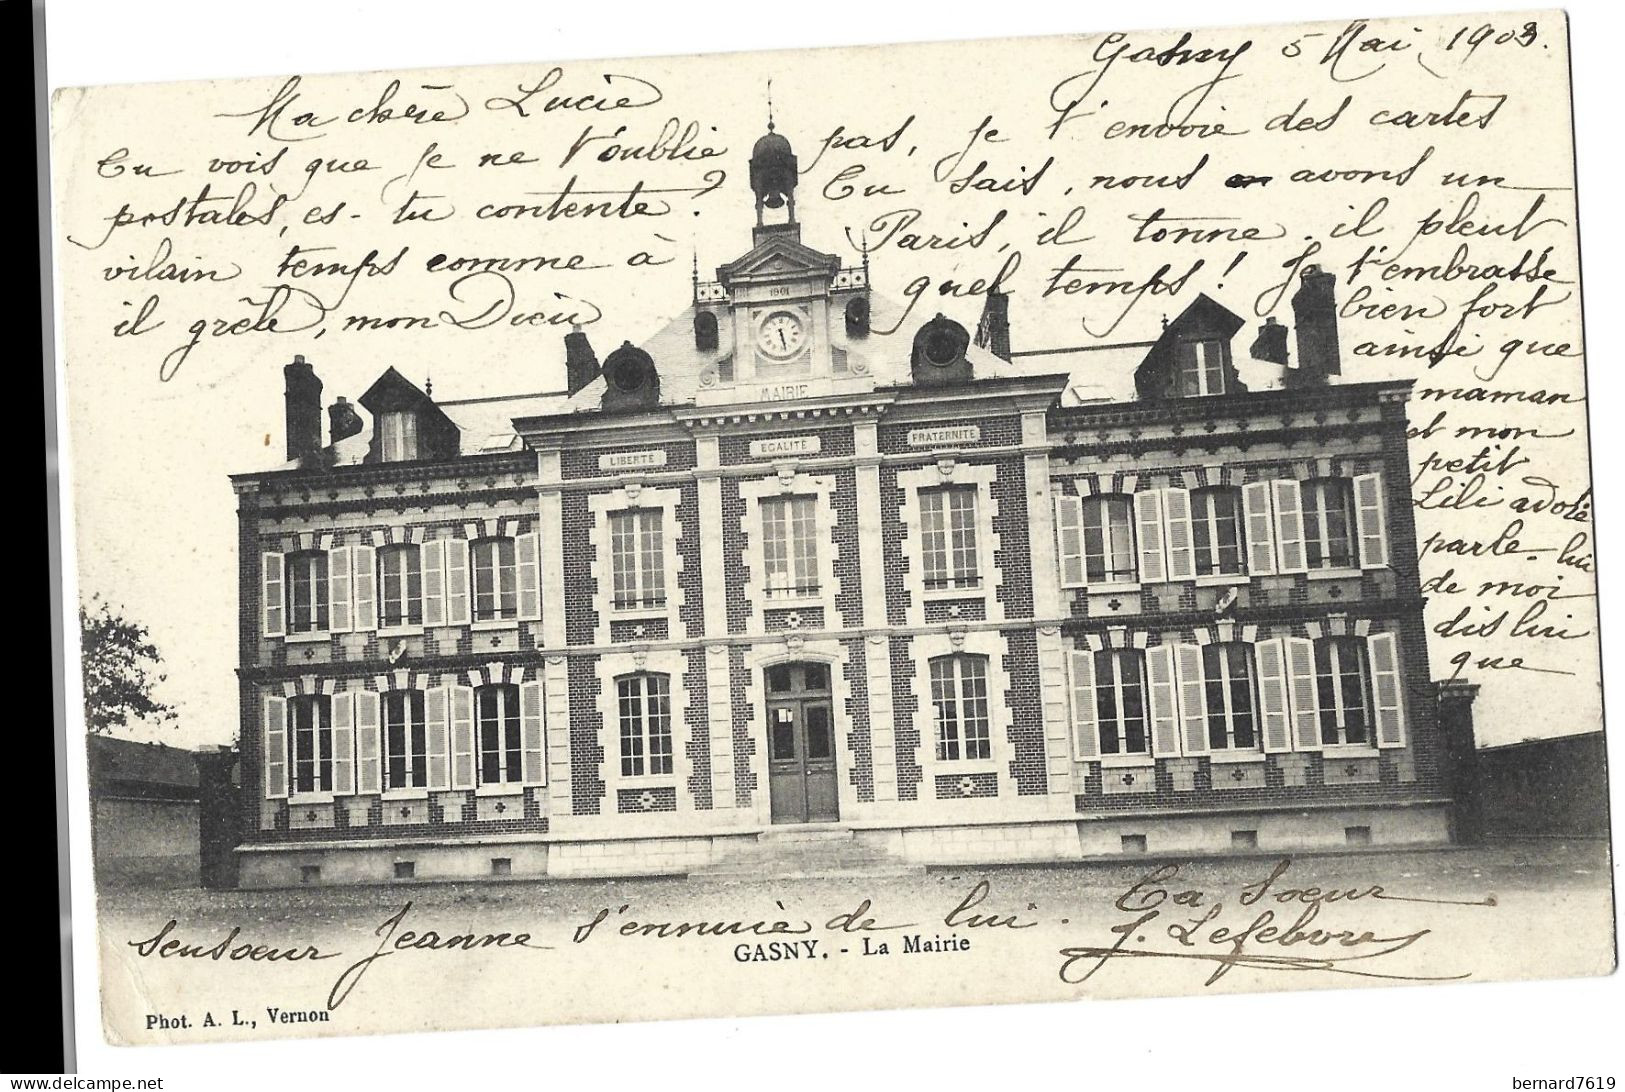 Gasny 5 Mai 1903.
Ma chère Lucie
Tu vois que je ne t'oublie pas, je t'envoie des cartes
postales, es-tu contente? Tu sais, nous avons un
vilain temps comme à Paris, il tonne, il pleut
il grêle, mon Dieu quel temps! Je t'embrasse
bien fort
ainsi que
maman
et mon
petit
Lili adoré
parle-lui
de moi
dis lui
que
1901
MAIRIE
LIBERTÉ
EGALITÉ
FRATERNITÉ
sa soeur Jeanne s'ennuie de lui. Ta soeur
J. Lefebvre
GASNY. - La Mairie
Phot. A. L., Vernon
bernard7619